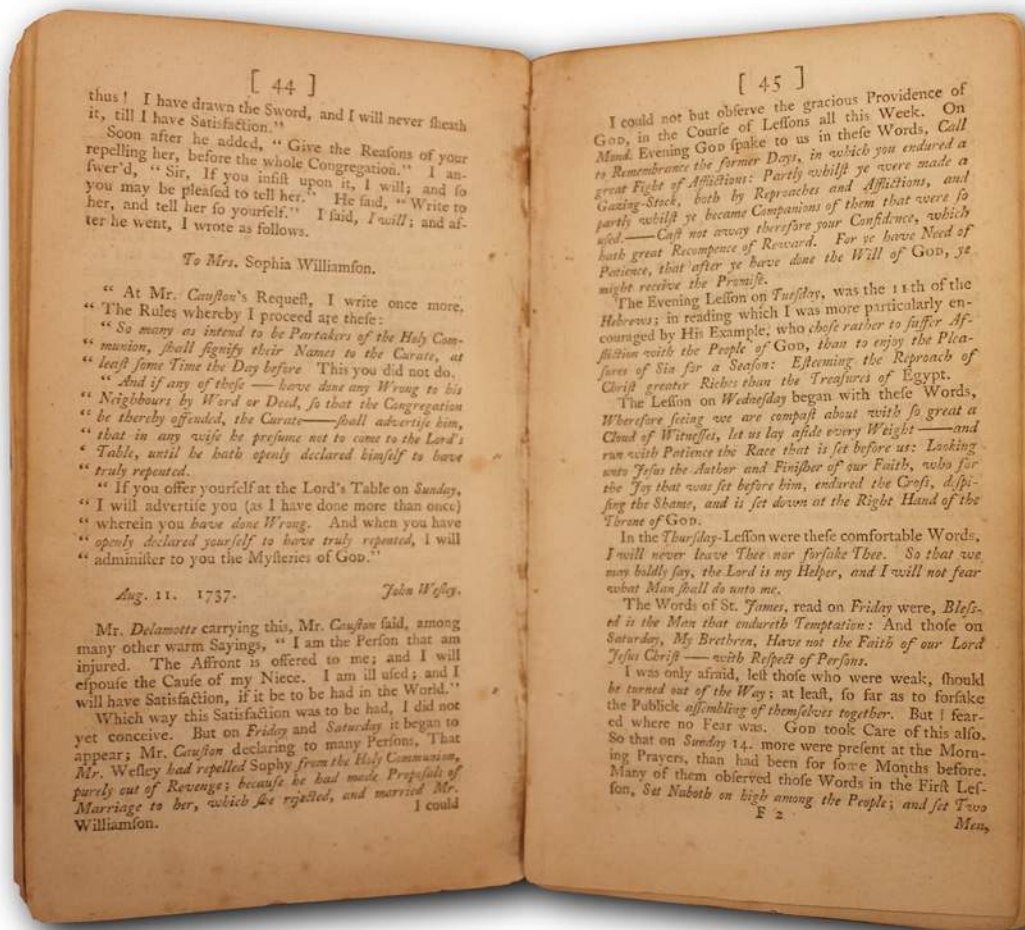 [ 44 ]
thus! I have drawn the Sword, and I will never ſheath
it, till I have Satisfaction."
Soon after he added, " Give the Reaſons of your
repelling her, before the whole Congregation." I an-
ſwer'd, " Sir, If you inſiſt upon it, I will; and ſo
you may be pleaſed to tell her." He ſaid, " Write to
her, and tell her ſo yourſelf." I ſaid, I will; and af-
ter he went, I wrote as follows.
To Mrs. Sophia Williamſon.
" At Mr. Cauſton's Requeſt, I write once more,
" The Rules whereby I proceed are theſe:
" So many as intend to be Partakers of the Holy Com-
" munion, ſhall ſignify their Names to the Curate, at
" leaſt ſome Time the Day before This you did not do.
" And if any of theſe — have done any Wrong to his
" Neighbours by Word or Deed, ſo that the Congregation
" be thereby offended, the Curate——ſhall advertiſe him,
" that in any wiſe he preſume not to come to the Lord's
' Table, until he hath openly declared himſelf to have
" truly repented.
" If you offer yourſelf at the Lord's Table on Sunday,
" I will advertiſe you (as I have done more than once)
" wherein you have done Wrong. And when you have
" openly declared yourſelf to have truly repented, I will
" adminiſter to you the Myſteries of GOD."
Aug. 11. 1737. John Weſley.
Mr. Delamotte carrying this, Mr. Cauſton ſaid, among
many other warm Sayings, " I am the Perſon that am
injured. The Affront is offered to me; and I will
eſpouſe the Cauſe of my Niece. I am ill uſed; and I
will have Satisfaction, if it be to be had in the World."
Which way this Satisfaction was to be had, I did not
yet conceive. But on Friday and Saturday it began to
appear; Mr. Cauſton declaring to many Perſons, That
Mr. Weſley had repelled Sophy from the Holy Communion,
purely out of Revenge; becauſe he had made Propoſals of
Marriage to her, which ſhe rejected, and married Mr.
Williamſon. I could
[ 45 ]
I could not but obſerve the gracious Providence of
GOD, in the Courſe of Leſſons all this Week. On
Mond. Evening GOD ſpake to us in theſe Words, Call
to Remembrance the former Days, in which you endured a
great Fight of Afflictions: Partly whilſt ye were made a
Gazing-Stock, both by Reproaches and Afflictions, and
partly whilſt ye became Companions of them that were ſo
uſed.——Caſt not away therefore your Confidence, which
hath great Recompence of Reward. For ye have Need of
Patience, that after ye have done the Will of GOD, ye
might receive the Promiſe.
The Evening Leſſon on Tueſday, was the 11th of the
Hebrews; in reading which I was more particularly en-
couraged by His Example, who choſe rather to ſuffer Af-
fliction with the People of GOD, than to enjoy the Plea-
ſures of Sin for a Seaſon: Eſteeming the Reproach of
Chriſt greater Riches than the Treaſures of Egypt.
The Leſſon on Wedneſday began with theſe Words,
Wherefore ſeeing we are compaſt about with ſo great a
Cloud of Witneſſes, let us lay aſide every Weight ——and
run with Patience the Race that is ſet before us: Looking
unto Jeſus the Author and Finiſher of our Faith, who for
the Joy that was ſet before him, endured the Croſs, deſpi-
ſing the Shame, and is ſet down at the Right Hand of the
Throne of GOD.
In the Thurſday-Leſſon were theſe comfortable Words,
I will never leave Thee nor forſake Thee. So that we
may boldly ſay, the Lord is my Helper, and I will not fear
what Man ſhall do unto me.
The Words of St. James, read on Friday were, Bleſſ-
ed is the Man that endureth Temptation: And thoſe on
Saturday, My Brethren, Have not the Faith of our Lord
Jeſus Chriſt —— with Reſpect of Perſons.
I was only afraid, leſt thoſe who were weak, ſhould
be turned out of the Way; at leaſt, ſo far as to forſake
the Publick aſſembling of themſelves together. But I fear-
ed where no Fear was. GOD took Care of this alſo.
So that on Sunday 14. more were preſent at the Morn-
ing Prayers, than had been for ſome Months before.
Many of them obſerved thoſe Words in the Firſt Leſ-
ſon, Set Naboth on high among the People; and ſet Two
F 2
Men,